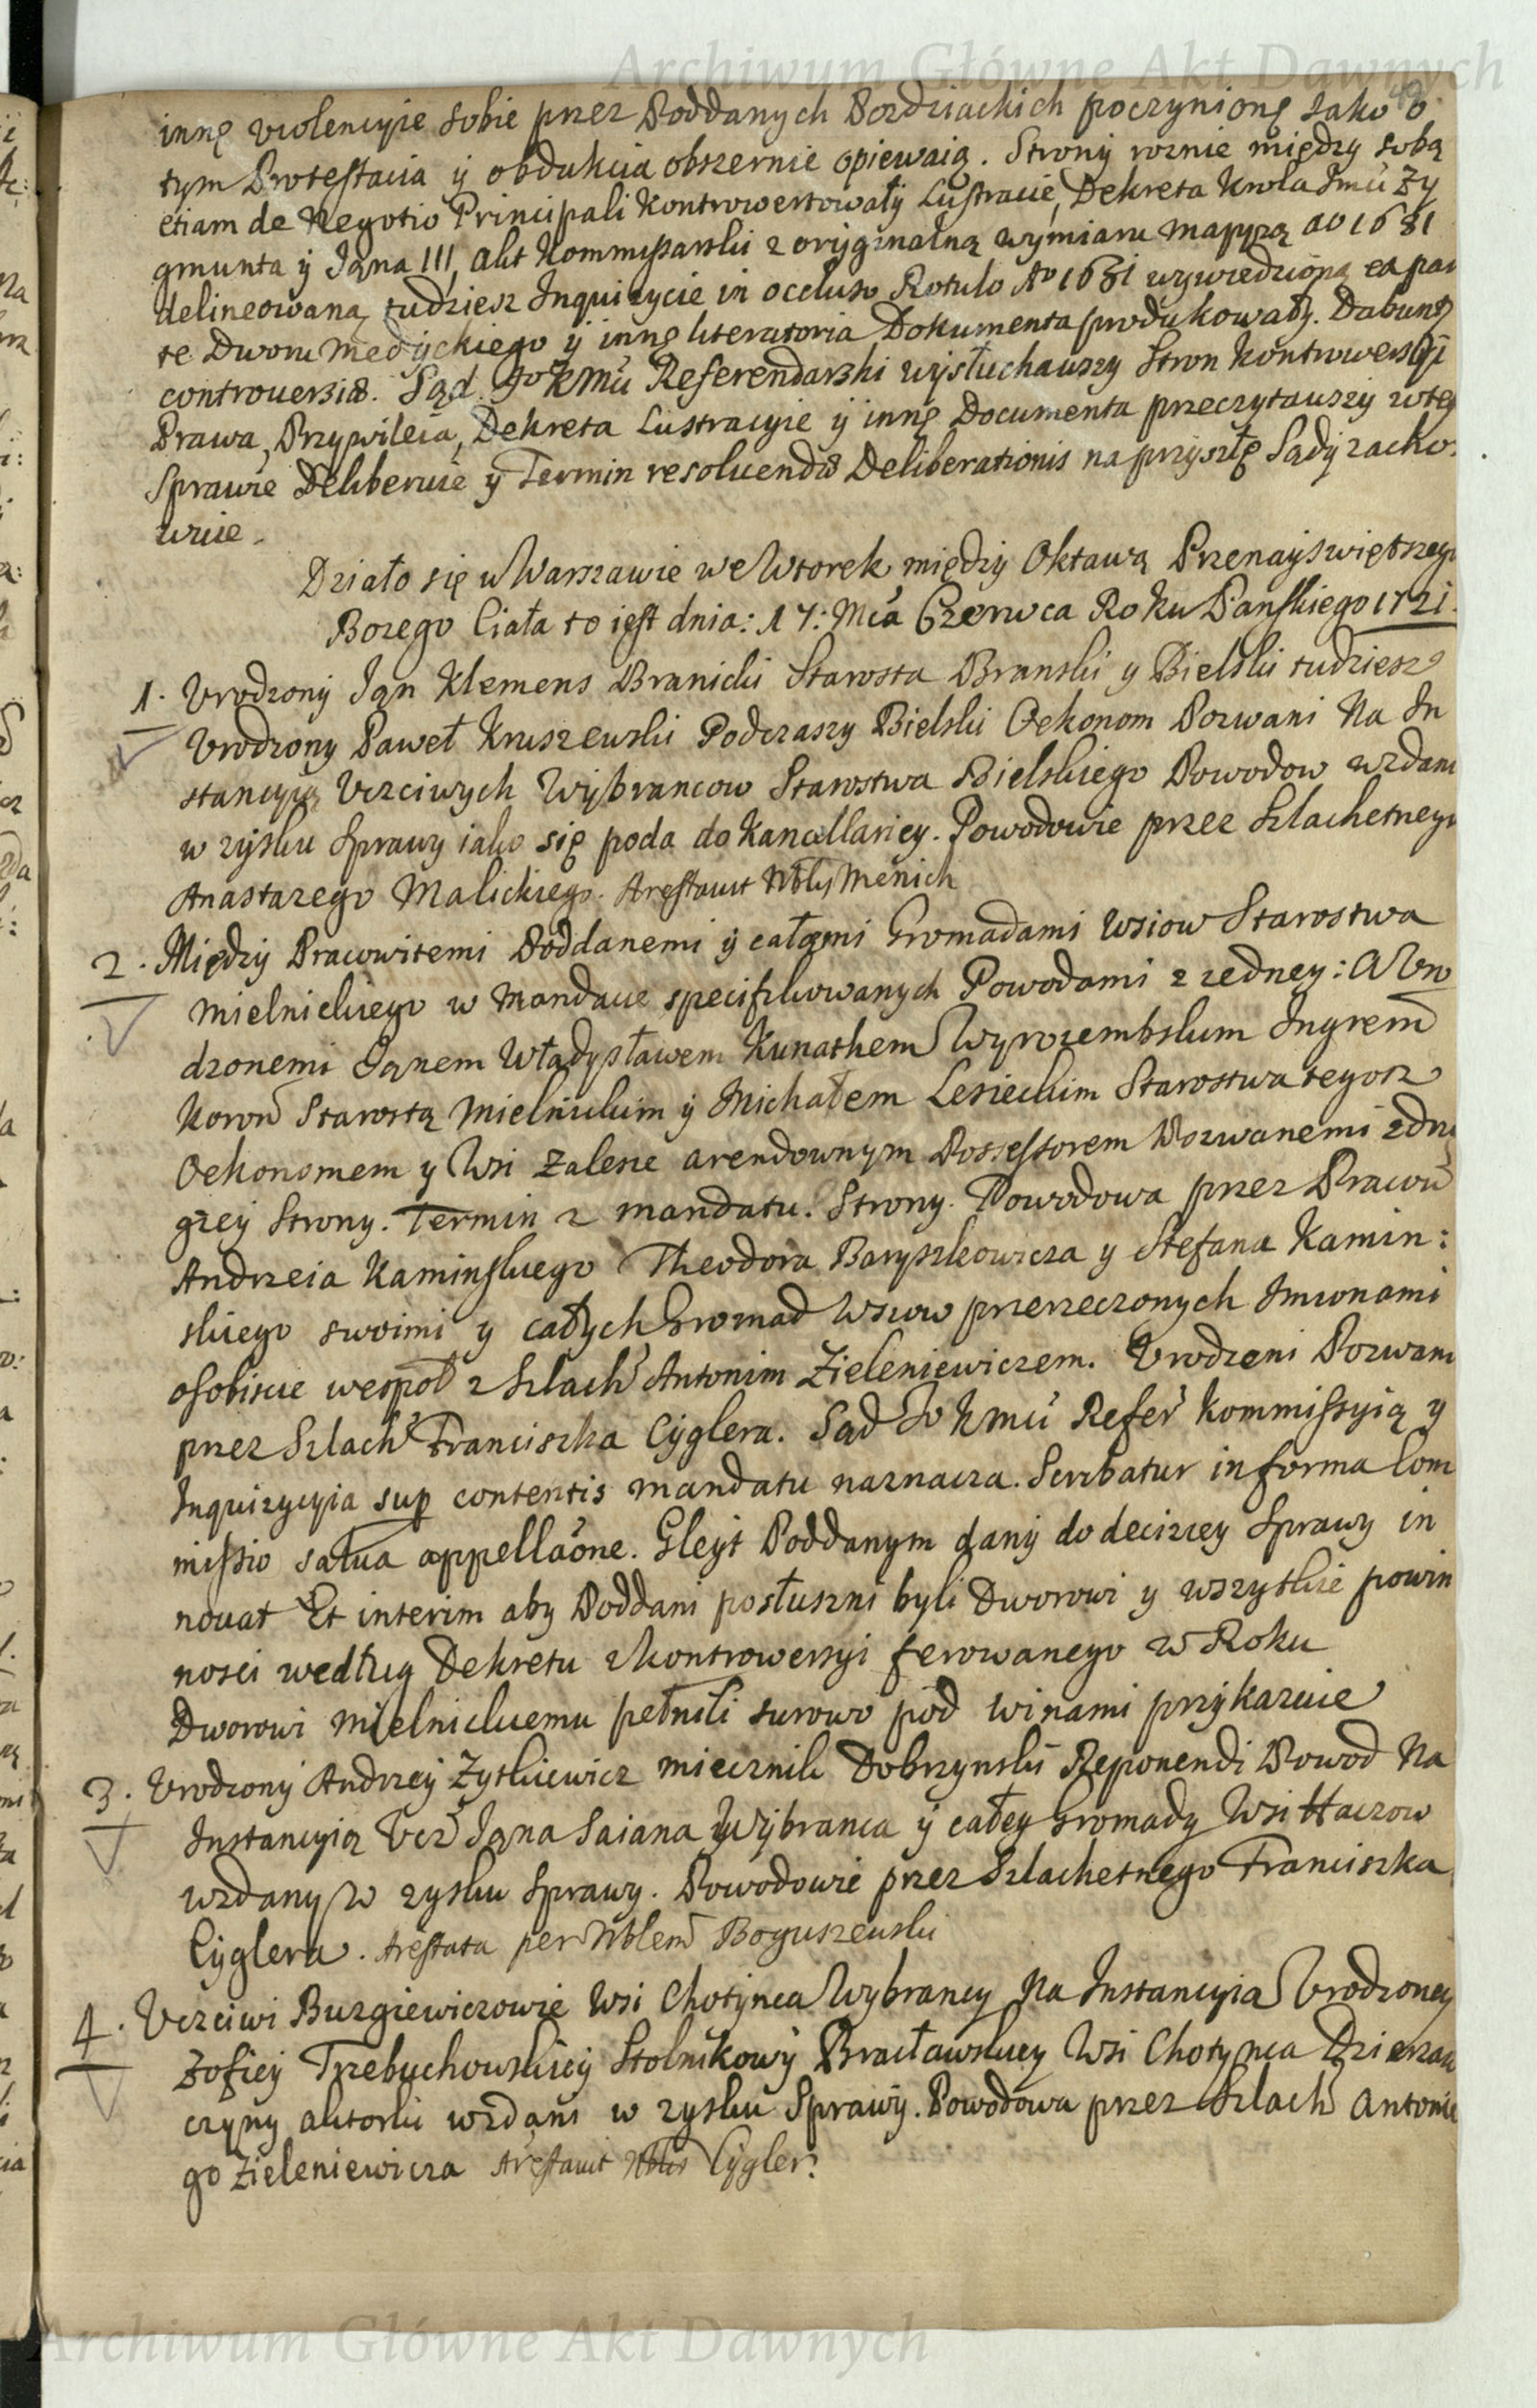 Archiwum Główne Akt Dawnych
49
innę violencyie sobie przez Poddanych Pozdziackich poczynionę jako o
tym Protestacia ÿ obdukcia obszernie opiewaią. Stronÿ roznie między sobą
etiam de Negotio Principali Kontrowertowałÿ Lustracie, Dekreta Krola Jmci Zy
gmunta ÿ Jana III, akt Kommissarski z orÿginalną wymiaru mappą ao 1681
delineowaną tudziesz Inquizycie in occluso Rotulo Ao 1681 wywiedzioną ex par
te Dworu Medÿckiego ÿ innę literatoria Dokumenta produkowałÿ. Dabunt
controversia. Sąd Jo Kmci Referendarski wysłuchawszy Stron Kontrowersÿi
Prawa, Przywileia, Dekreta Lustracyie ÿ innę Documenta przeczytawszÿ w teÿ
Sprawie Deliberuie ÿ Termin resolvenda Deliberationis na przÿszłę Sądÿ zacho
wuie.
Działo się w Warszawie we Wtorek międzÿ Oktawą Przenayswiętszego
Bozego Ciała to iest dnia: 17: Mca Czerwca Roku Panskiego 1721.
1. Urodzonÿ Jan Klemens Branicki Starosta Branski y Bielski tudziesz
Urodzony Paweł Kruszewski Podczaszy Bielski Oekonom Pozwani Na In
stancyią Uczciwych Wÿbrancow Starostwa Bielskiego Powodow wzdani
w zysku Sprawy iako się poda do Kancellariey. Powodowie przez Szlachetnego
Anastazego Malickiego. Arestavit Nblis Menich
2. Międzÿ Pracowitemi Poddanemi ÿ całemi Gromadami Wsiow Starostwa
Mielnickiego w Mandacie specifikowanych Powodami z jedney: a Uro
dzonemi Janem Władysławem Kunathem Wyrozembskim Ingrem
Koron Starostą Mielnickim ÿ Michałem Lesieckim Starostwa tegosz
Oekonomem y Wsi Zalesie arendownym Possessorem Pozwanemi z dru
giey Strony. Termin z mandatu. Strony. Powodowa przez Pracow
Andrzeia Kaminskiego Theodora Baryszkowicza y Stefana Kamin:
skiego swoimi y całych Gromad Wsiow przerzeczonych Imionami
osobiscie wespoł z Szlach Antonim Zieleniewiczem. Urodzeni Pozwani
przez Szlach Franciszka Cÿglera. Sąd Jo Kmci Refer Kommissyią y
Inquizycyia sup contentis mandatu naznacza. Scribatur in forma Com
missio salva appellaone. Gleyt Poddanym danÿ do decizycy Sprawy in
novat Et interim aby Poddani posłuszni byli Dworowi y wszytkie powin
nosci według Dekretu z kontrowersyi ferowanego w Roku
Dworowi Mielnickiemu pełnili surowo pod winami przÿkazuie
3. Urodzonÿ Andrzeÿ Zytkiewicz miecznik Dobrzynski Reponendi Powod Na
Instancyią Ucz Jana Saiana Wÿbranca ÿ całey Gromady Wsi Haczow
wzdany w zysku Sprawy. Powodowie przez Szlachetnego Franciszka
Cÿglera. Arestata per Nblem Boguszewski
4. Uczciwi Burgiewiczowie Wsi Chotÿnca Wybrancy Na Instancyia Urodzoney
Zofiey Trzebuchowskieÿ Stolnikowÿ Bracławskiey Wsi Chotynca Dzierzaw
czyny aktorki wzdani w zysku Sprawÿ. Powodowa przez Szlach Antonie
go Zieleniewicza Arestavit Nblis Cÿgler.
Archiwum Główne Akt Dawnych